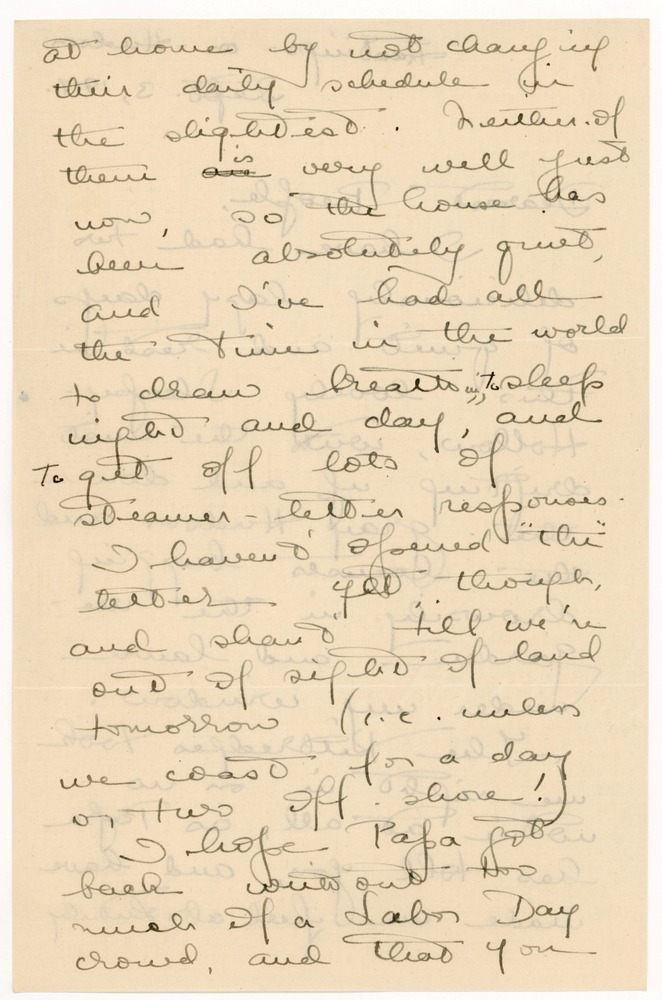 at home by not changing
their daily schedule in
the slightest. Neither of
them are is very well just
now, so the house has
been absolutely quiet,
and I've had all
the time in the world
to draw breath in, to sleep
night and day, and
to get off lots of
steamer-letter responses.
I haven't opened "the"
letter yet though,
and shan't till we're
out of sight of land
tomorrow (i.e. unless
we coast for a day
or two off shore!)
I hope Papa got
back without too
much of a Labor Day
crowd, and that you